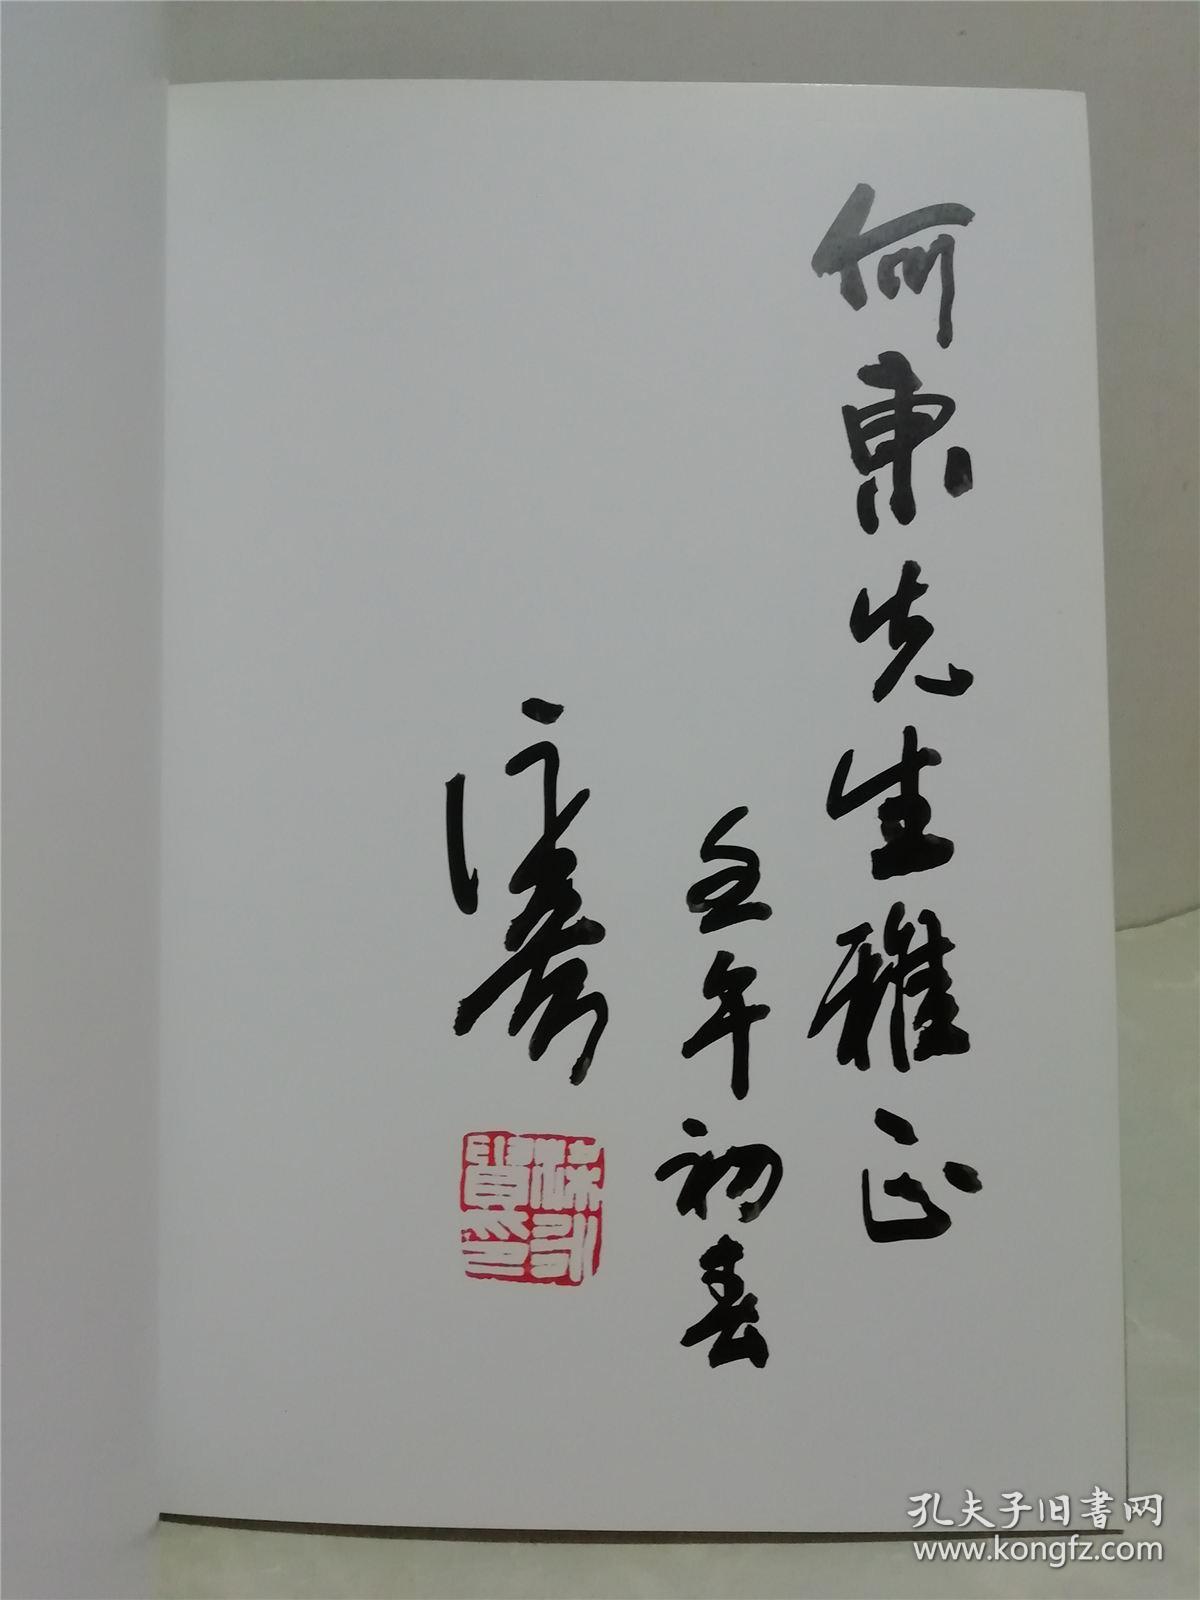 何東先生雅正
壬午初春
孔夫子旧书网
www.kongfz.com